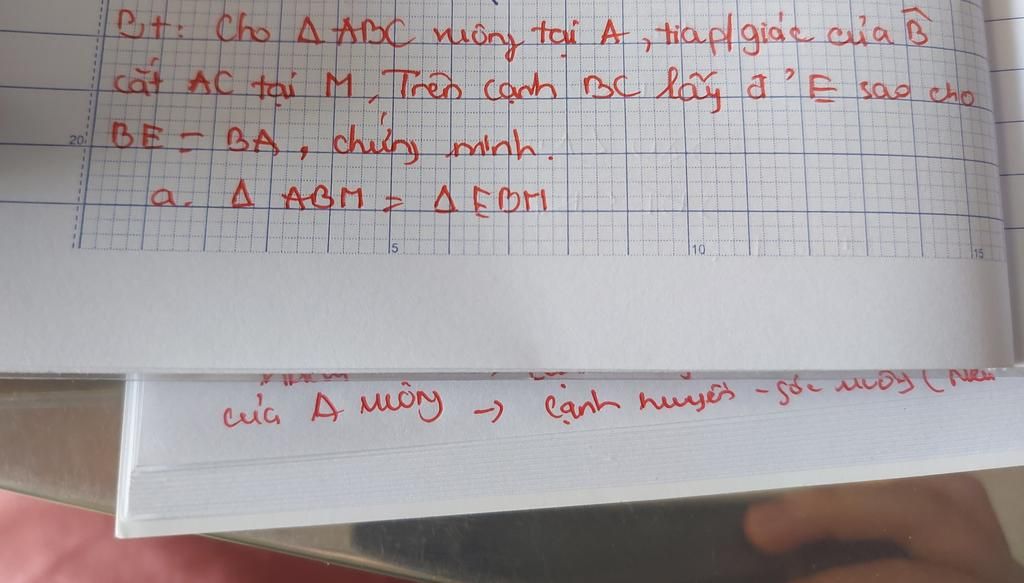 Bt: Cho Δ ABC vuông tại A, tia p/giác của B̂
cắt AC tại M, Trên cạnh BC lấy đ' E sao cho
20
BE = BA, chứng minh.
a. Δ ABM = Δ EBM
5 10 15
của Δ vuông → cạnh huyền - góc vuông (